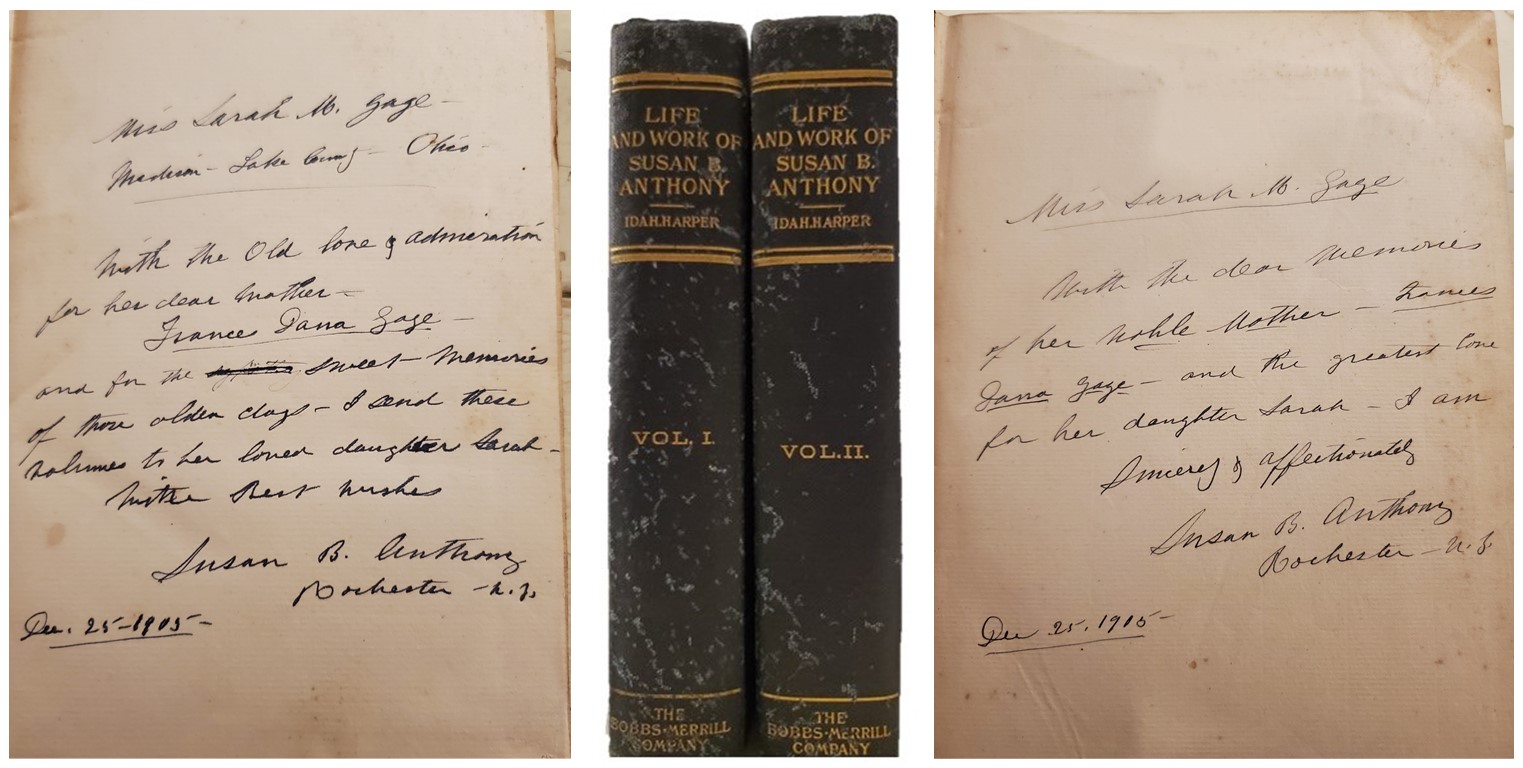 Miss Sarah M. Gage -
Madison - Lake County - Ohio -
With the Old love & admiration
for her dear Mother -
Frances Dana Gage -
and for the sweet - Memories
of those olden days - I send these
volumes to her loved daughter Sarah -
With Best wishes
Susan B. Anthony
Rochester - N.Y.
Dec. 25 - 1905 -
LIFE
AND WORK OF
SUSAN B.
ANTHONY
IDA H. HARPER
VOL. I.
THE
BOBBS-MERRILL
COMPANY
LIFE
AND WORK OF
SUSAN B.
ANTHONY
IDA H. HARPER
VOL. II.
THE
BOBBS-MERRILL
COMPANY
Miss Sarah M. Gage
With the dear Memories
of her Noble Mother - Frances
Dana Gage - and the greatest love
for her daughter Sarah - I am
Sincerely & affectionately
Susan B. Anthony
Rochester - N.Y.
Dec 25. 1905 -